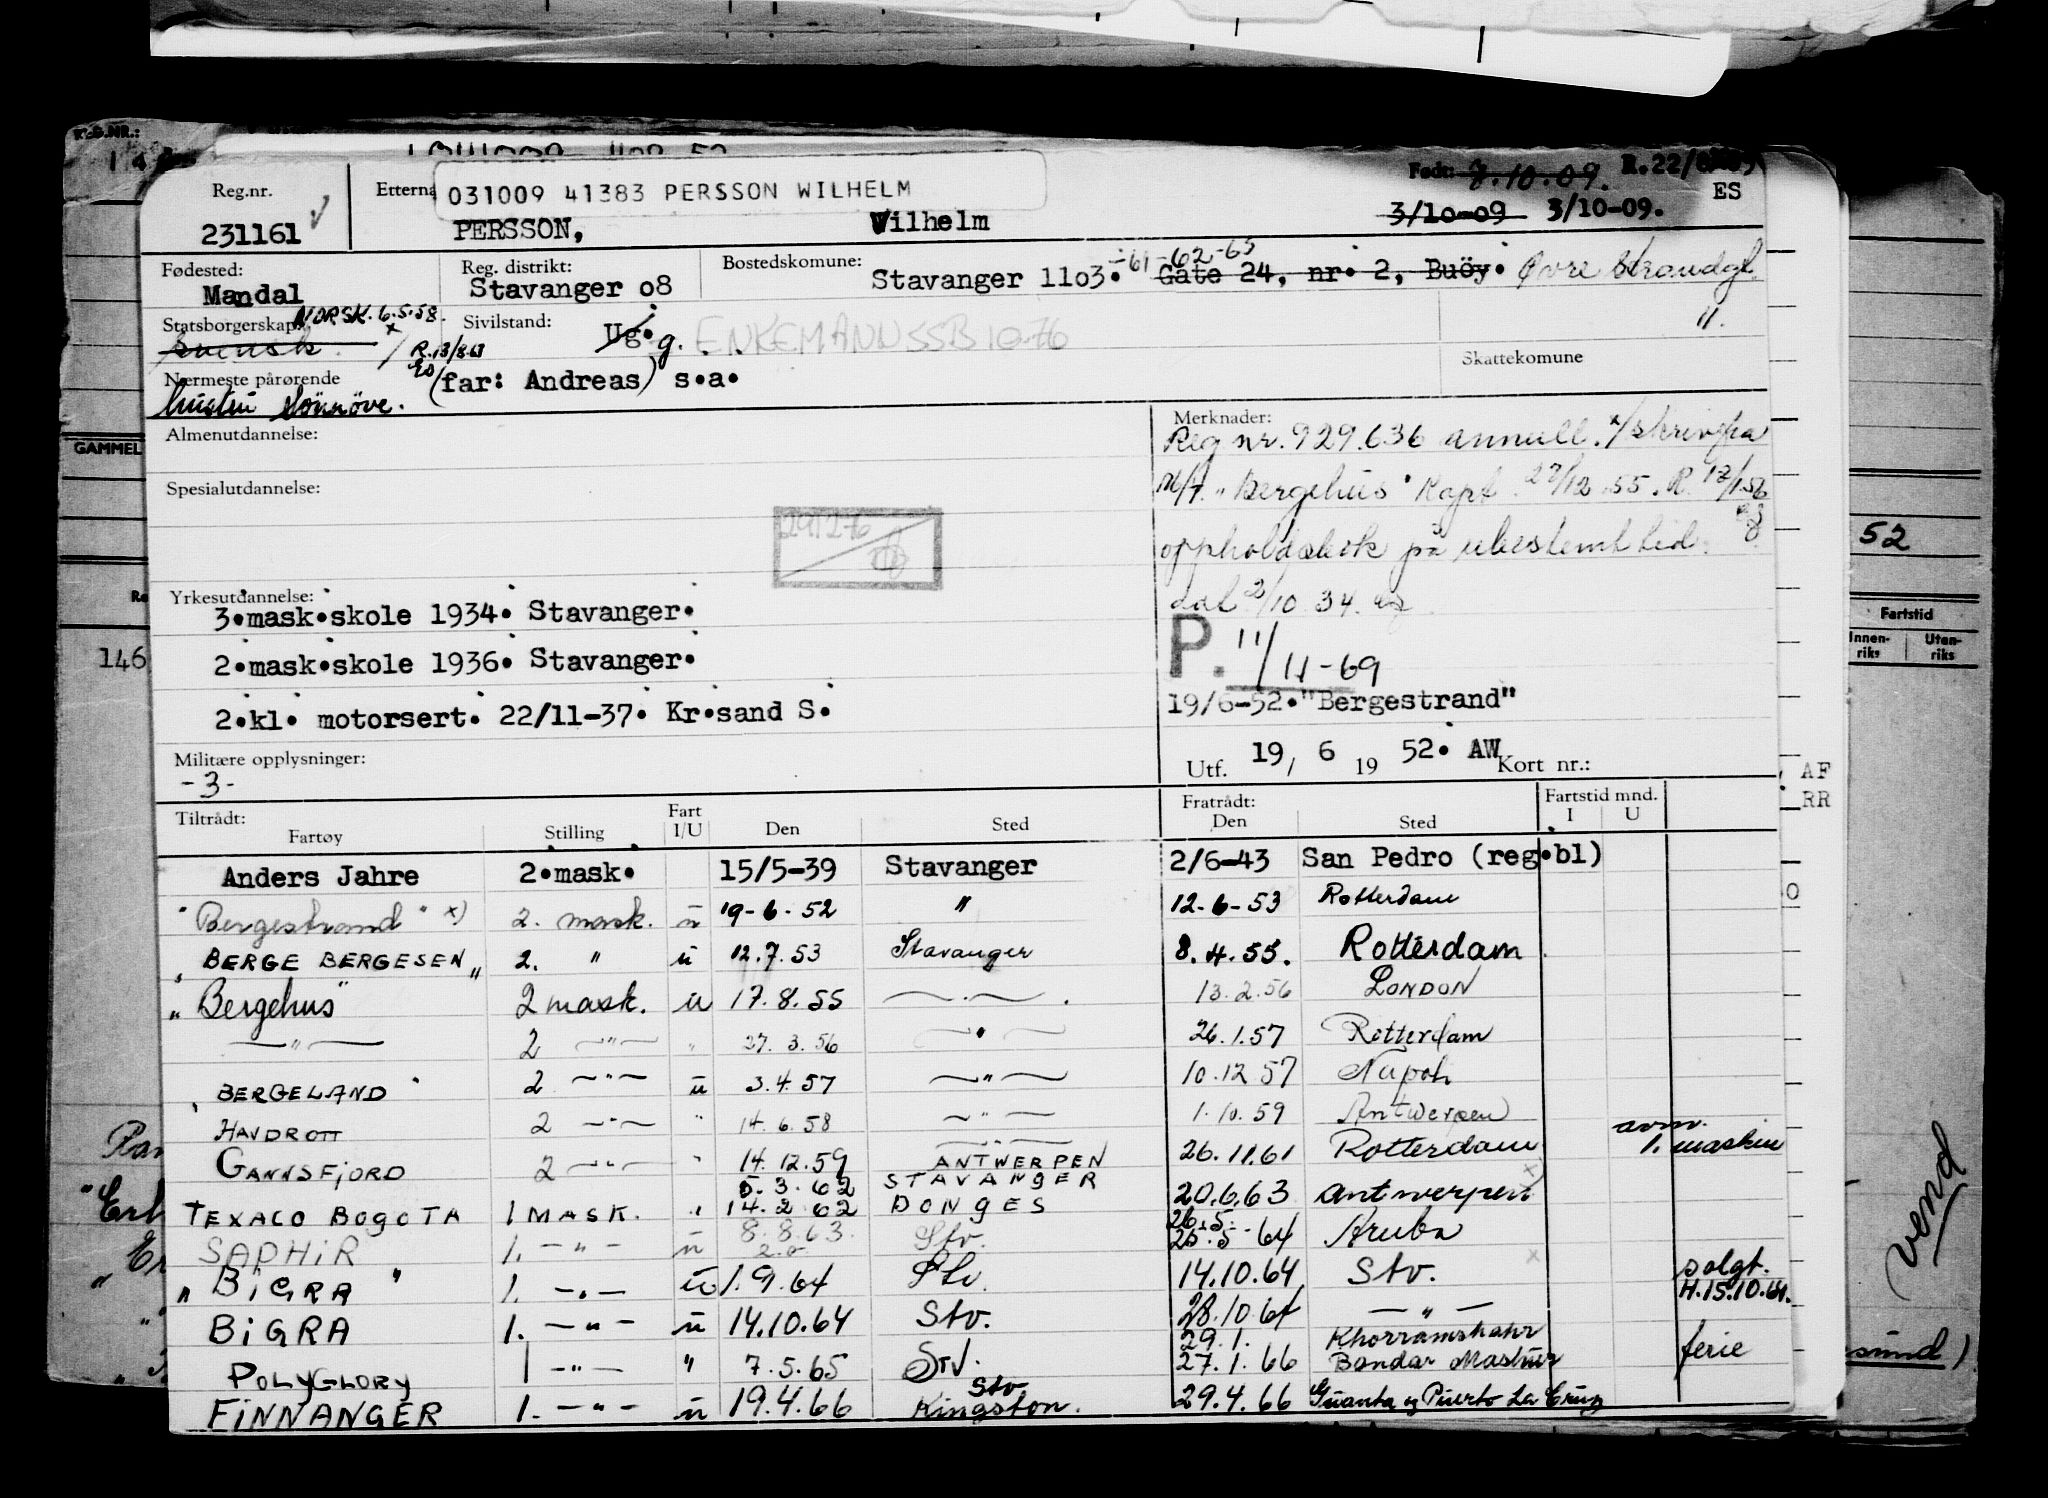 Reg.nr.
231161
031009 41383 PERSSON WILHELM
PERSSON, Wilhelm
Født: 8.10.09. R.22/8
3/10-09 3/10-09. ES
Fødested: Mandal
Reg. distrikt: Stavanger o8
Bostedskomune: Stavanger 11o3. -61-62-65 Gate 24, nr. 2, Buöy. Øvre Strandgt.
11.
Statsborgerskap: NORSK. 6.5.58.
svensk. x/ R.13/8.63
Sivilstand: Ug. g. ENKEMANN SSB 10.76
Skattekomune
Nærmeste pårørende (far: Andreas) s.a.
hustru Sönnöve.
Almenutdannelse:
Spesialutdannelse:
291276
Merknader:
Reg nr. 929.636 annull. x/ skriv fra
M/T. "Bergehus" Kapt. 27/12.55. R. 17/1.56
oppholdsbok på ubestemt tid.
dat 2/10 34.
P. 11/11-69
19/6-52."Bergestrand"
Utf. 19/6 1952. AW Kort nr.:
Yrkesutdannelse:
3.mask.skole 1934. Stavanger.
2.mask.skole 1936. Stavanger.
2.kl. motorsert. 22/11-37. Kr.sand S.
Militære opplysninger:
-3-
Tiltrådt: Fratrådt: Fartstid mnd.
Fartøy Stilling Fart I/U Den Sted Den Sted I U
Anders Jahre 2.mask. 15/5-39 Stavanger 2/6-43 San Pedro (reg.bl)
"Bergestrand" x) 2. mask. u 19-6-52 " 12-6-53 Rotterdam
"BERGE BERGESEN" 2. " u 12.7.53 Stavanger 8.4.55. Rotterdam
"Bergehus" 2 mask. u 17.8.55 — . — 13.2.56 LONDON
—"— 2 —"— " 27.3.56 — " — 26.1.57 Rotterdam
"BERGELAND" 2 —"— u 3.4.57 —"— 10.12 57 Napoli
HAVDROTT 2 —"— " 14.6.58 —"— 1.10.59 Antwerpen
GANNSFJORD 2 —"— " 14.12.59 ANTWERPEN 26.11.61 Rotterdam avm. 1. maskin
5.3.62 STAVANGER
TEXACO BOGOTA 1 MASK. " 14.2 62 DONGES 20.6.63 Antwerpen x)
SAPHIR 1. —"— u 8.8.63. Stv. 26.5. 25.5-64 Aruba
"BIGRA" 1. —"— u 1.9.64 Stv. 14.10.64 Stv. x solgt. H.15.10.64.
BIGRA 1. —"— u 14.10.64 Stv. 28.10.64 —"—
POLYGLORY 1 —"— " 7.5.65 Stv. 29.1. Khorramshahr
27.1.66 Bandar Mashur ferie
FINNANGER 1. —"— u 19.4.66 Stv Kingston. 29.4.66 Guanta og Puerto La Cruz
GAMMEL
146
52
Fartstid
Innen-riks Uten-riks
AF
RR
vend